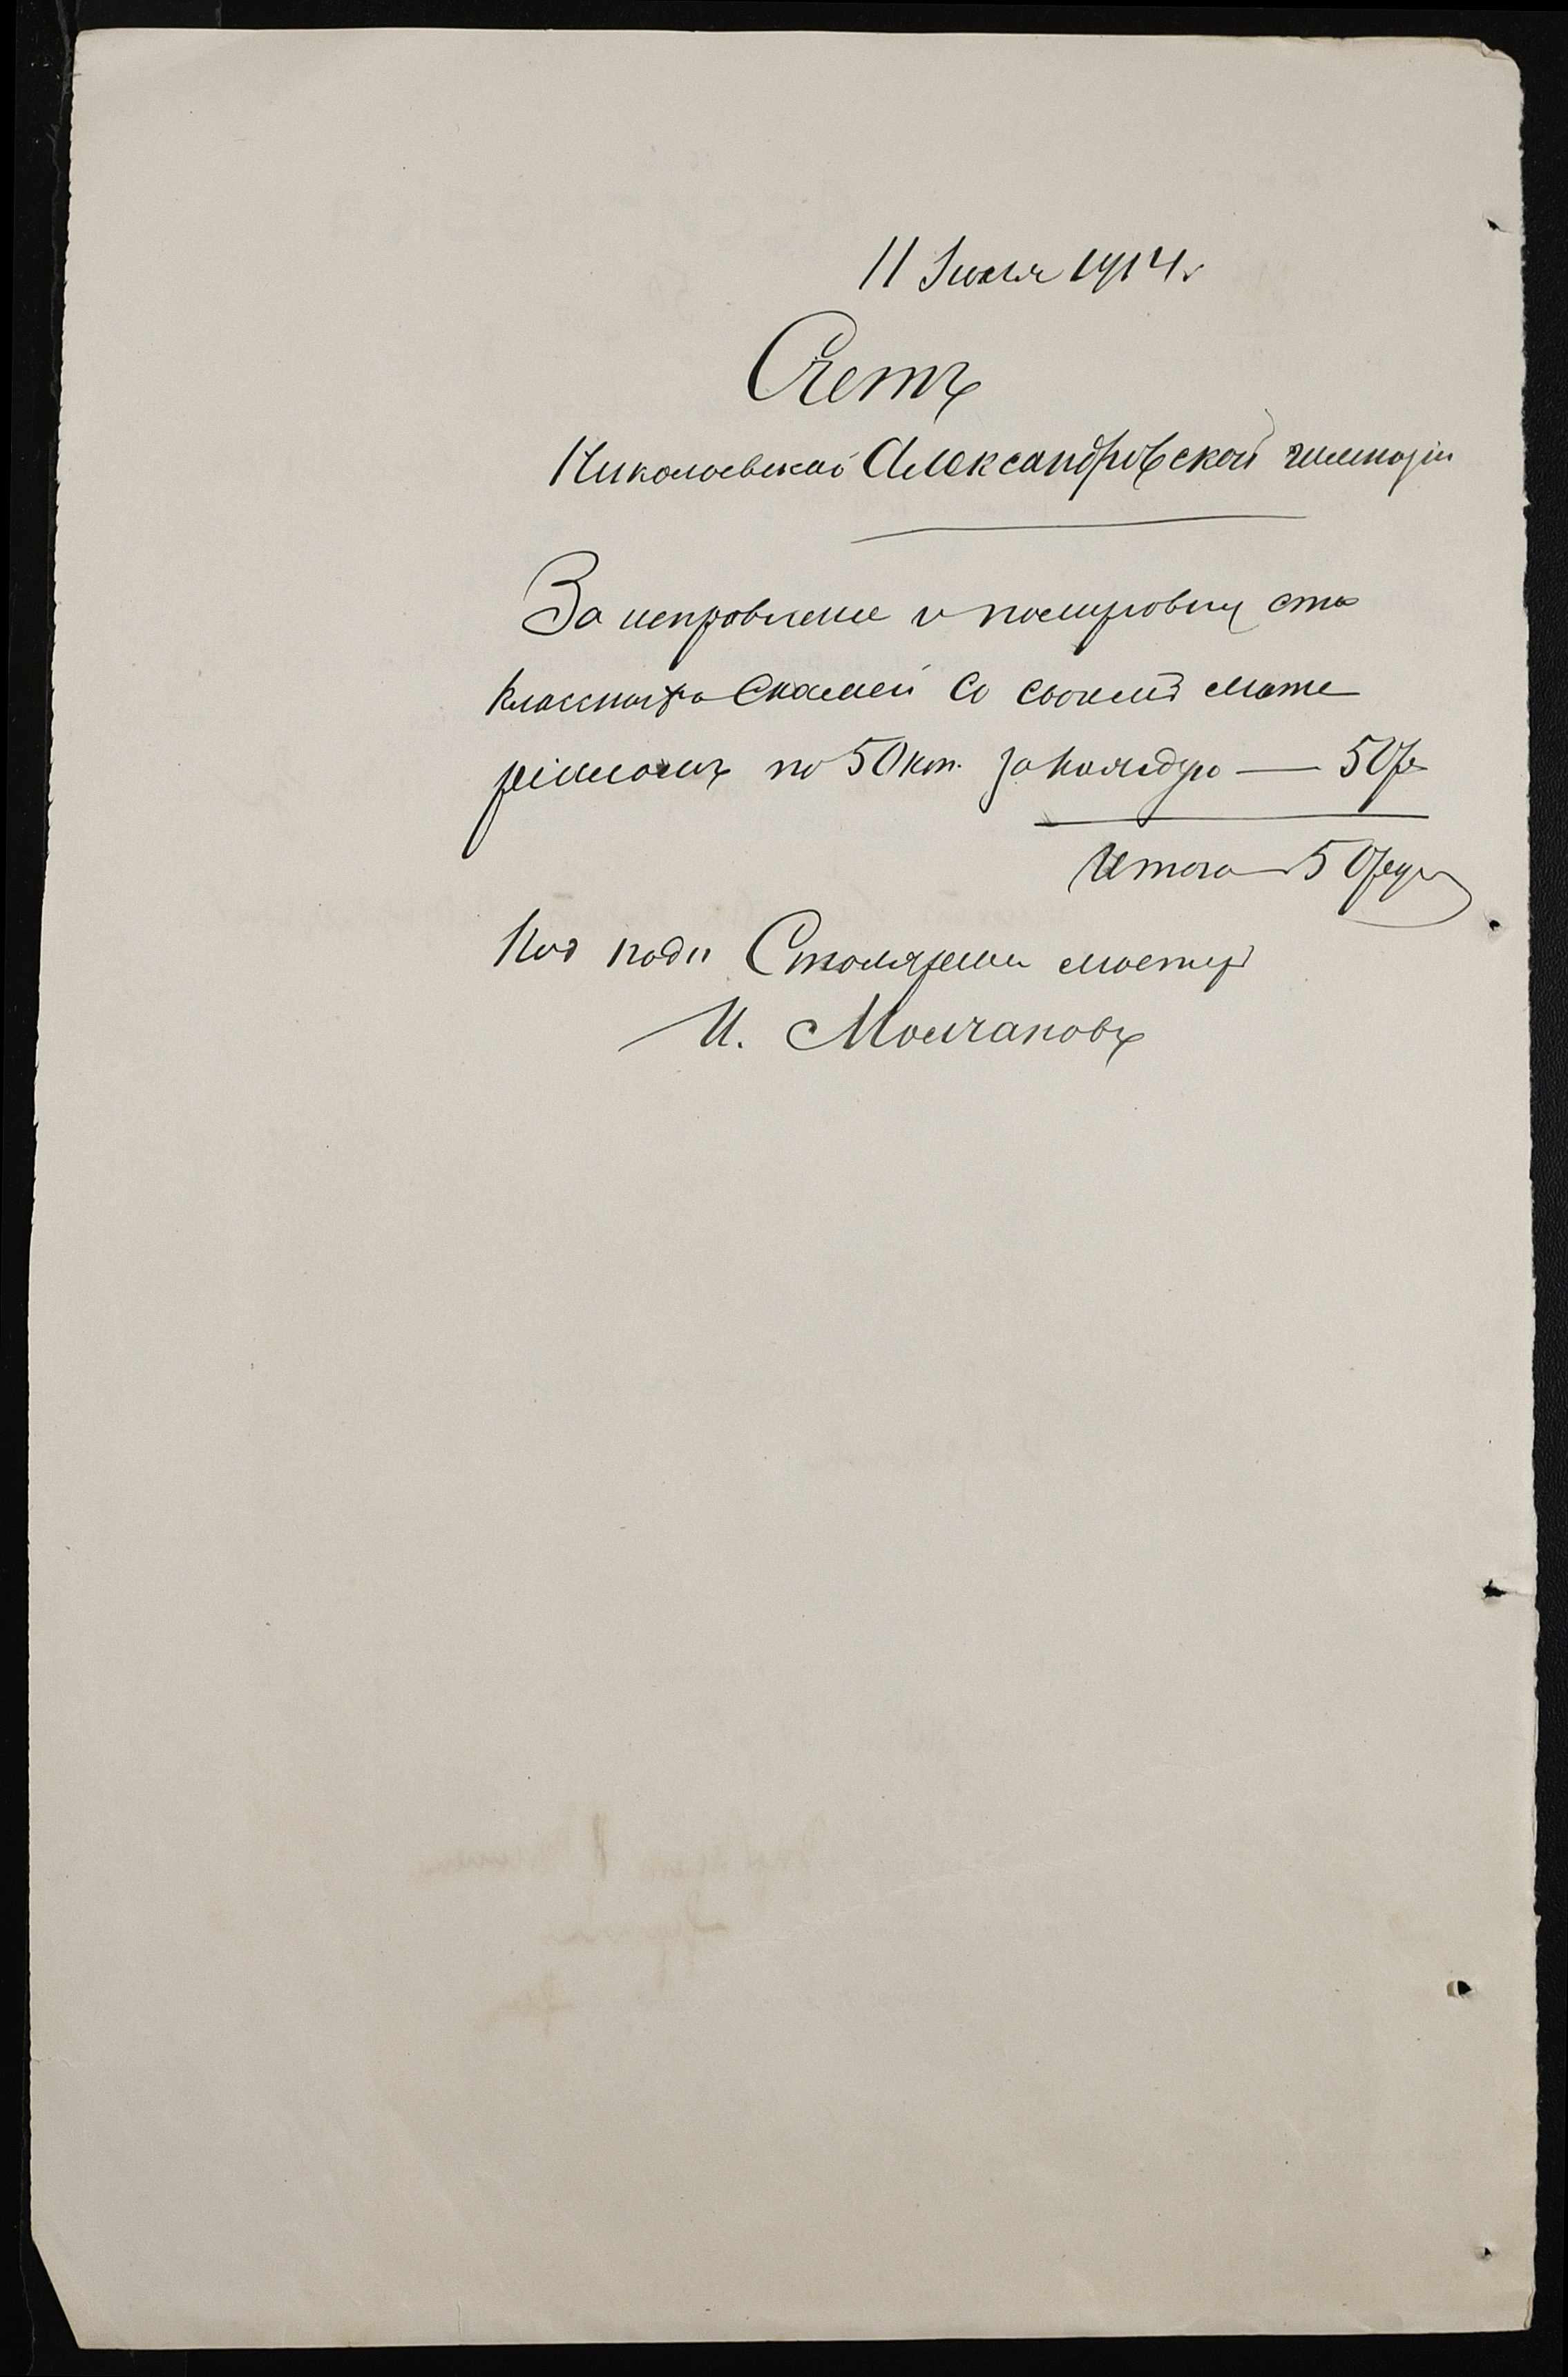 11 Июля 1914 г
Счетъ
Николаевской Александровской гимназіи
За исправление и
классныхъ скамей со своимъ мате
ріаломъ по 50 коп. за каждую — 50 р
Итого — 50 руб
Столярный мастеръ
И. Молчановъ